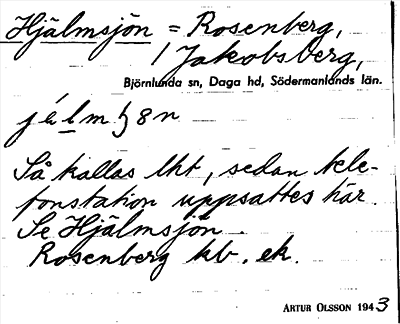 Hjälmsjön = Rosenberg,
/ Jakobsberg,
Björnlunda sn, Daga hd, Södermanlands län.
Så kallas lht, sedan tele-
fonstation uppsattes här.
Se Hjälmsjön
Rosenberg kb. ek.
ARTUR OLSSON 1943